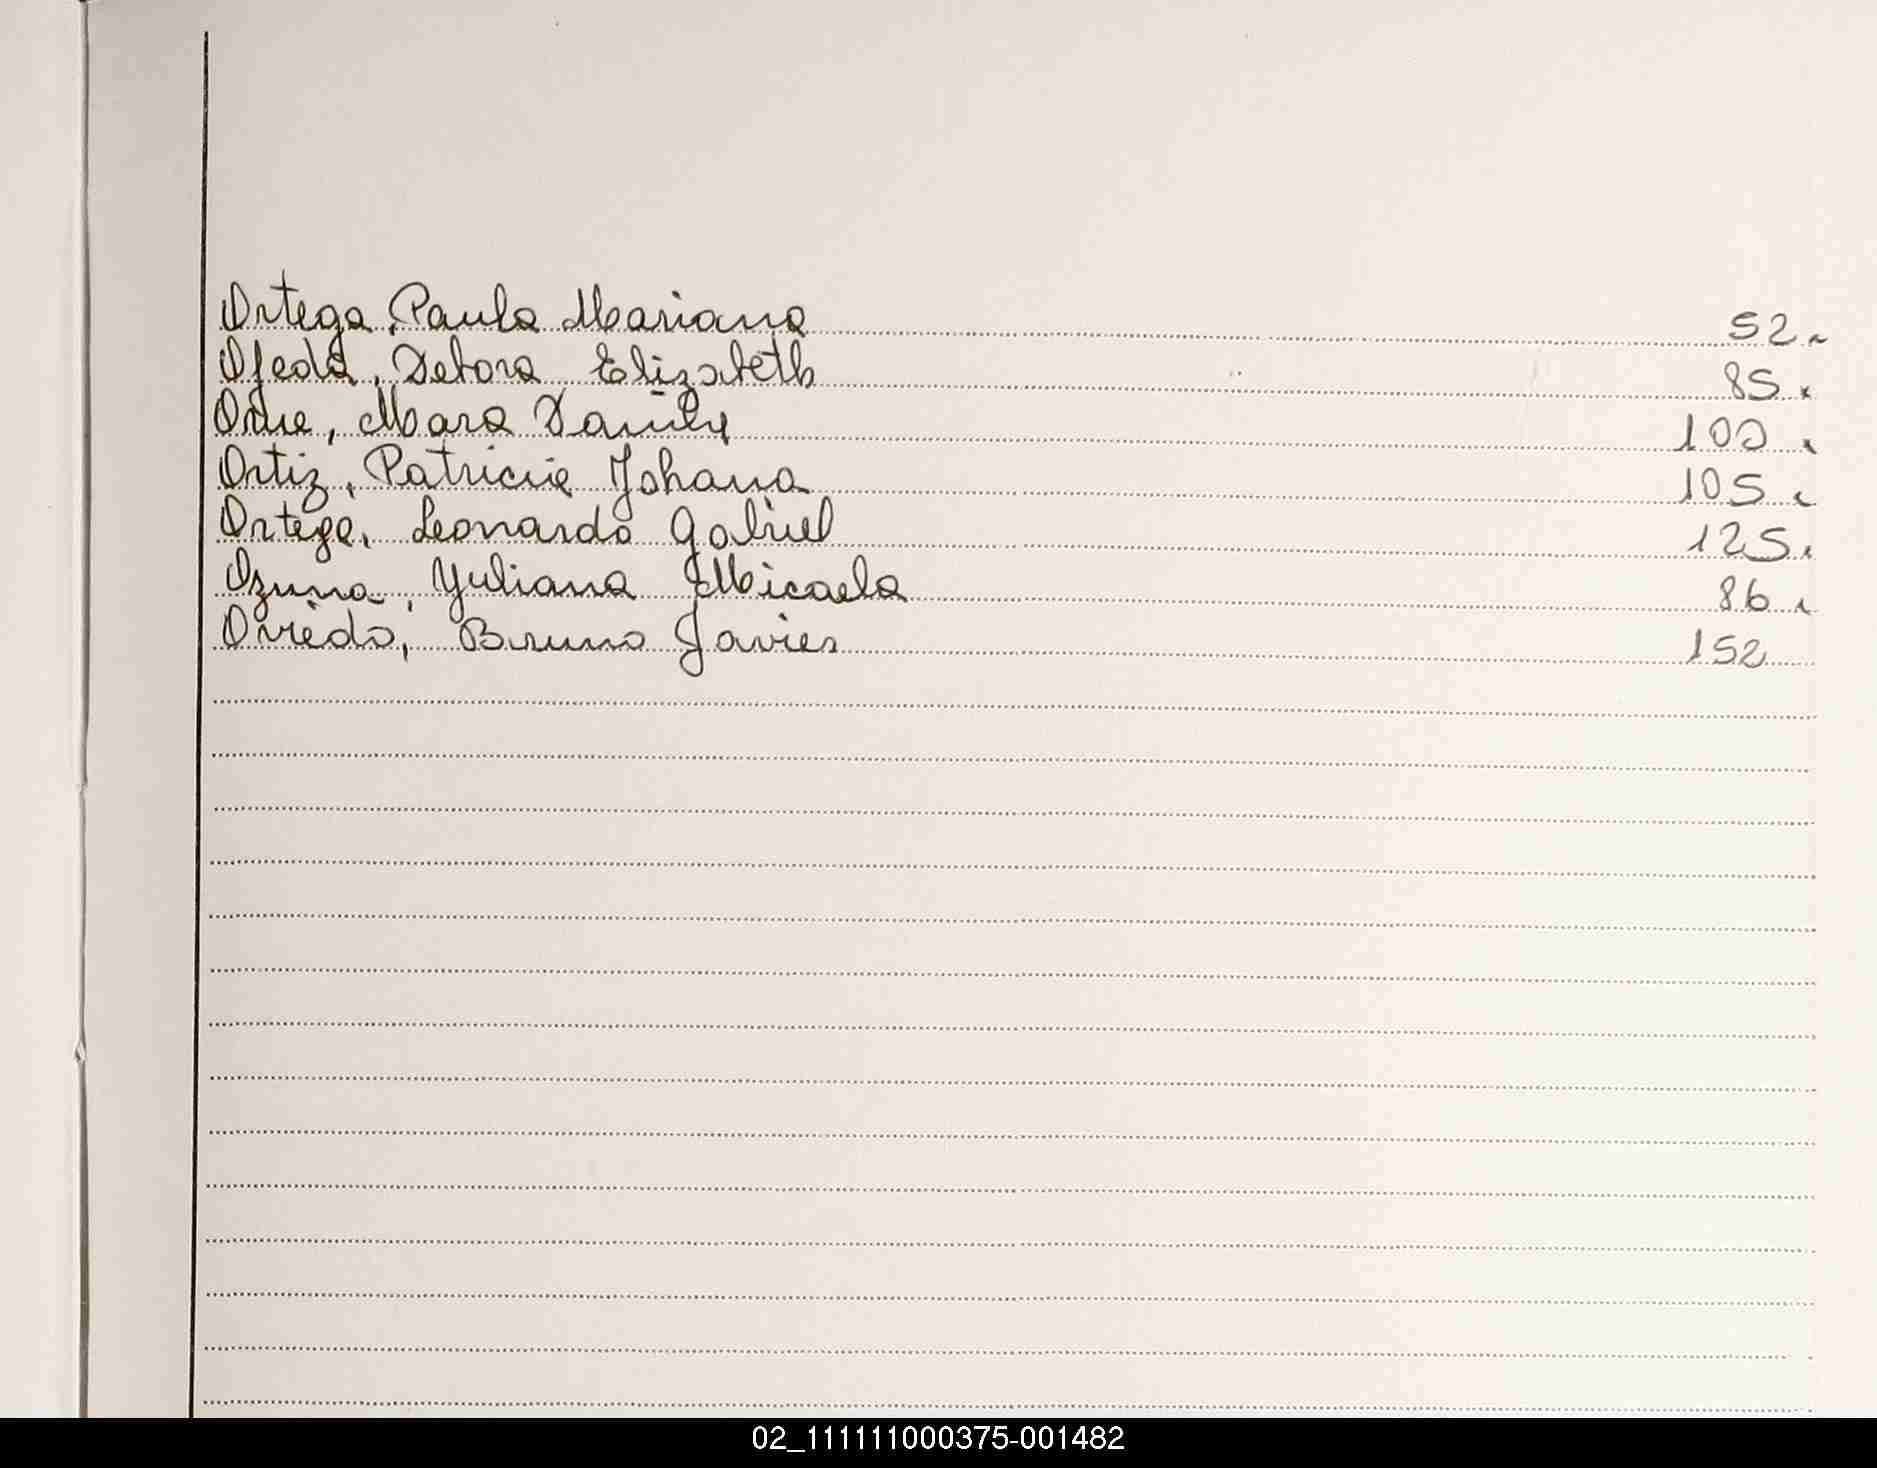 Ortega, Paula Mariana 52.
Ojeda, Debora Elizabeth 85.
Orue, Mara 100.
Ortiz, Patricia Johana 105.
Ortega, Leonardo Gabriel 125.
Ozuna, Yuliana Micaela 86.
Oviedo, Bruno Javier 152
02_111111000375-001482